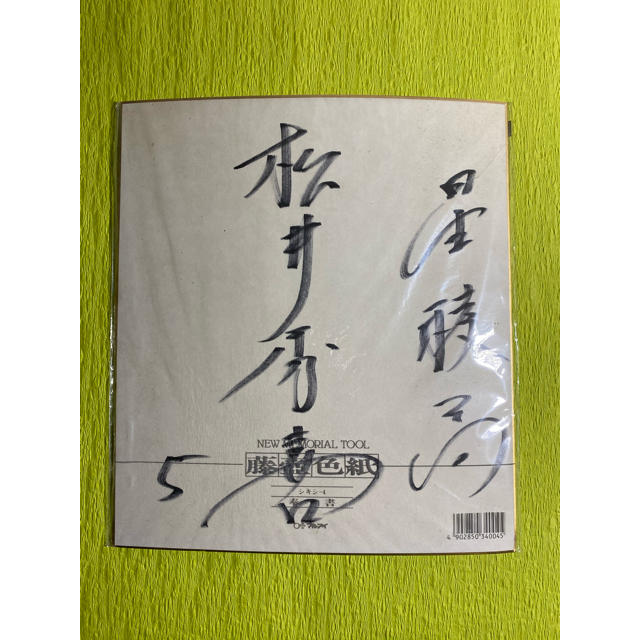 星稜高
松井秀喜
5
NEW MEMORIAL TOOL
藤 色紙
シキシ-4
奉書
マルアイ
4 902850 340045